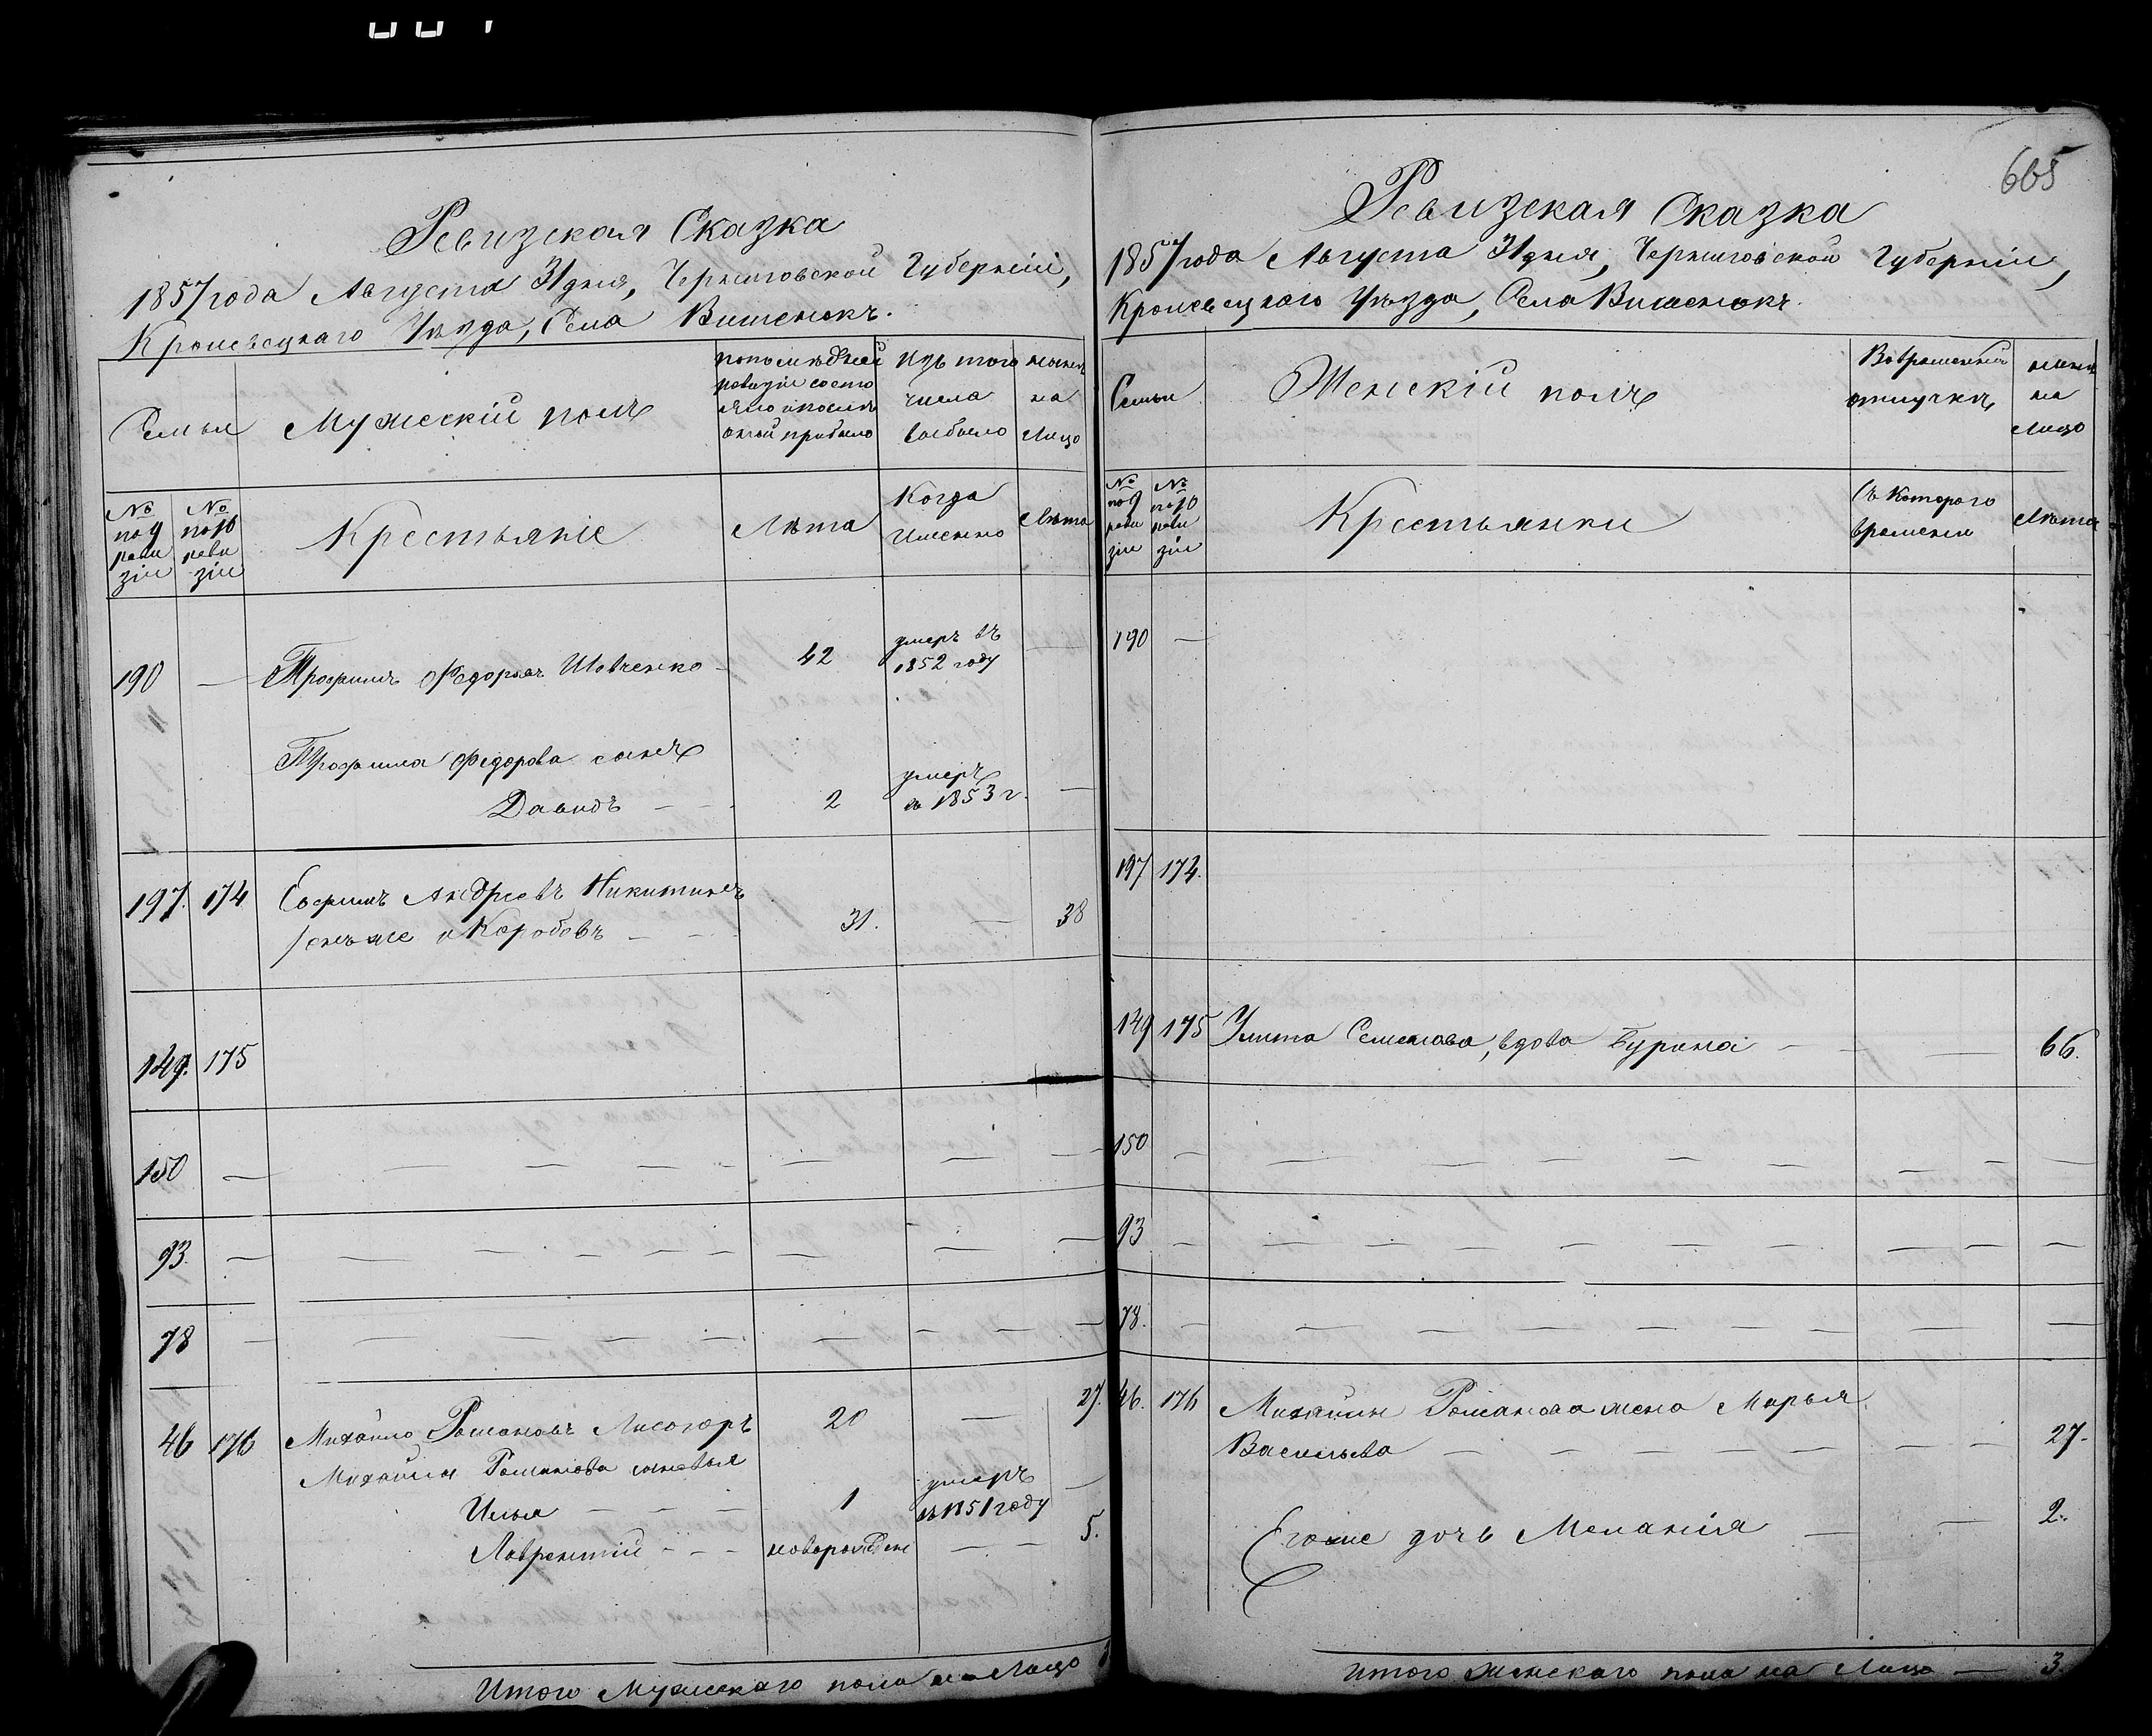 Ревизская Сказка
1857 года Августа 31 дня, Черниговской Губерніи,
Кролевецкаго Уезда, Села Вишенокъ.
Семьи
Мужескій полъ
по последней
ревизіи состо
яло и после
оной прибыло
Изъ того
числа
выбыло
ныне
на
Лицо
№
по 9
реви
зіи
№
по 10
реви
зіи
Крестьяніе
Лѣта
Когда
именно
Лѣта
190 —
Трофимъ Федоровъ Шевченко
42
умеръ въ
1852 году
Трофима Федорова сынъ
Давидъ — —
2
умеръ
въ 1853 г. —
197. 174
Ефимъ Андреевъ Никитинъ
онъ же и Коробовъ — —
31. — 38
149. 175
150 —
93. —
78 —
46 176
Михайло Романовъ Лисогоръ
20 — 27.
Михайлы Романова сыновья
Илья — — —
1
умеръ
въ 1851 году —
Лаврентій - - —
новорожден — — 5.
Итого Мужескаго пола на Лицо
665
Ревизская Сказка
1857 года Августа 31 дня, Черниговской Губерніи,
Кролевецкаго Уѣзда, Села Вишенокъ.
Семьи
Женскій полъ
Во временной
отлучкѣ
ныне
на
Лицо
№
по 9
реви
зіи
№
по 10
реви
зіи
Крестьянки
Съ которого
времени
Лѣта
190 —
197 174.
149 175 Улита Семенова, вдова Бурима — — — 66.
150 —
93 —
78. —
46. 176 Михайлы Романова жена Марья
Васильева — — — 27.
Егоже дочь Меланія — — 2.
Итого женскаго пола на Лицо — 3.